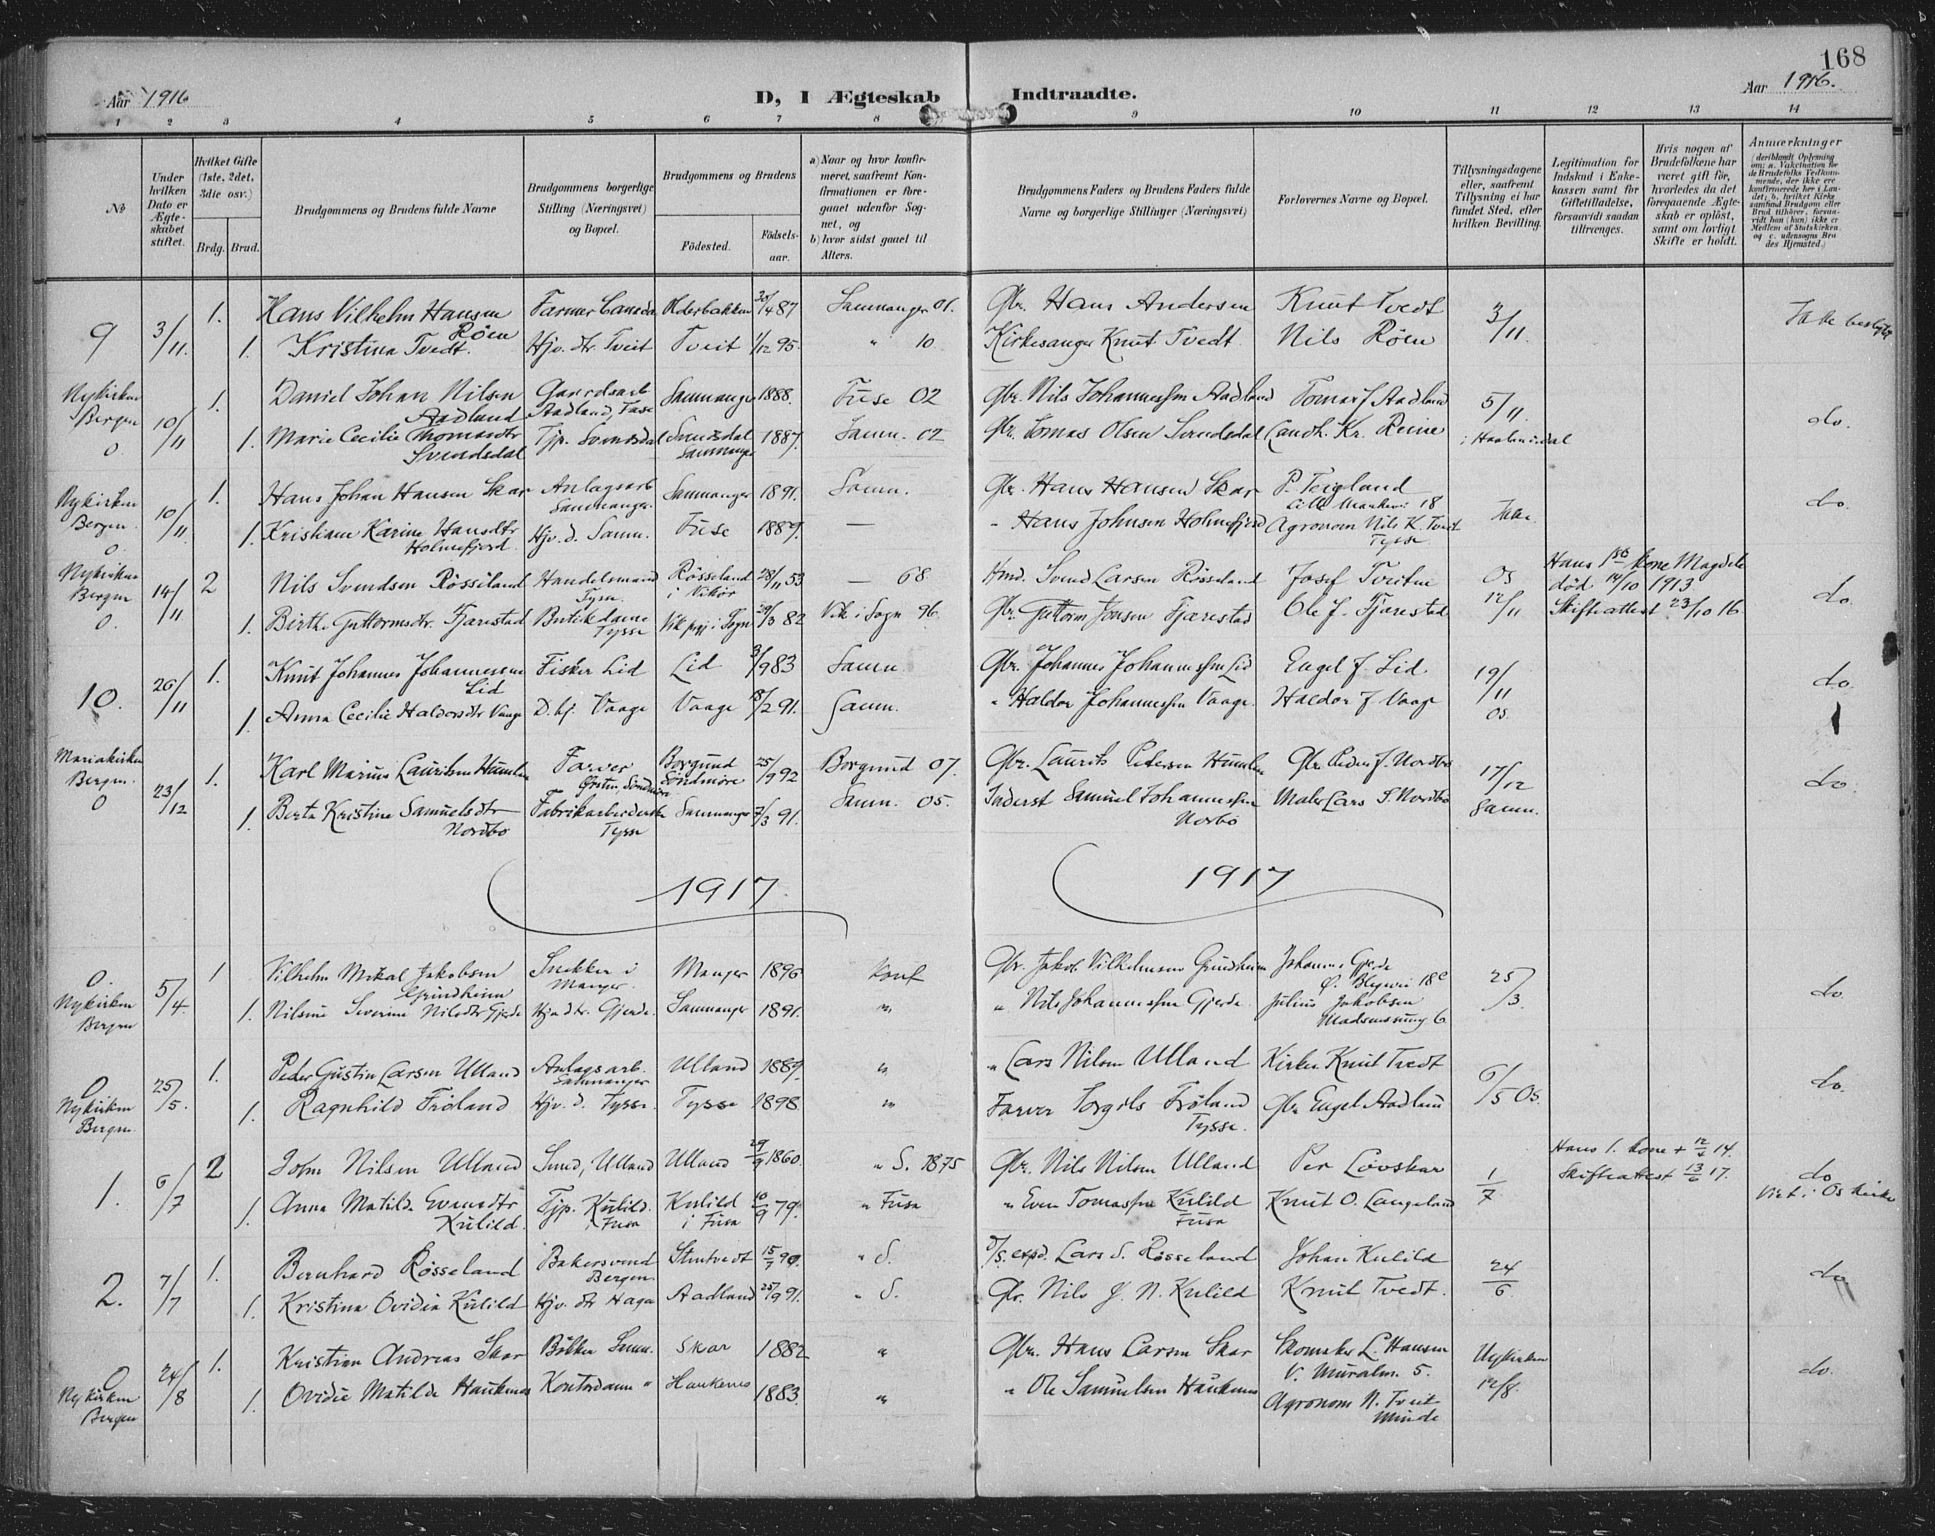 168
Aar 1916
D, I Ægteskab Indtraadte.
Aar 1916.
1 2 3 4 5 6 7 8 9 10 11 12 13 14
No
Under hvilken Dato er Ægteskabet stiftet.
Hvilket Gifte (1ste, 2det, 3die osv.)
Brdg. Brud.
Brudgommens og Brudens fulde Navne
Brudgommens borgerlige Stilling (Næringsvei) og Bopæl.
Brudgommens og Brudens
Fødested.
Fødselsaar.
a) Naar og hvor konfirmeret, saafremt Konfirmationen er foregaaet udenfor Sognet, og
b) hvor sidst gaaet til Alters.
Brudgommens Faders og Brudens Faders fulde Navne og borgerlige Stillinger (Næringsvei)
Forlovernes Navne og Bopæl.
Tillysningsdagene eller, saafremt Tillysning ei har fundet Sted, efter hvilken Bevilling.
Legitimation for Indskud i Enkekassen samt for Giftetilladelse, forsaavidt saadan tiltrænges.
Hvis nogen af Brudefolkene har været gift før, hvorledes da det foregaaende Ægteskab er opløst, samt om lovligt Skifte er holdt.
Anmærkninger
9 3/11 1. Hans Vilhelm Hansen Røen Farmer Canada Olderbakken 30/4 87 Samnanger 01. Gbr. Hans Andersen Knut Tvedt 3/11 Ikke beslegtet
1. Kristina Tvedt. Hjv. dtr. Tveit Tveit 1/12 95. " 10 Kirkesanger Knut Tvedt. Nils Røen
Nykirken Bergen 0 10/11 1. Daniel Johan Nilsen Aadland Gaardsarb Aadland, Fuse Samnanger 1888. Fuse 02 Gbr. Nils Johannessen Aadland Tomas J Aadland 5/11 do.
1. Marie Cecilie Thomasdtr Svendsdal Tjp. Svendsdal Svendsdal Samnanger 1887. Samn. 02 Gbr. Tomas Olsen Svendsdal Landh. Kr. Reime
Nykirken Bergen. 0 10/11 1. Hans Johan Hansen Skar Anlagsarb Samnanger. Samnanger 1891. Samn. Gbr. Hans Hansen Skar P. Teigland Lille Markevei 18 Ikke. do.
1. Kristiane Karine Hansdtr Holmefjord. Hjv. d. Samn. Fuse 1889. — " Hans Johnsen Holmefjord Agronom Nils K. Tveit Tysse
Nykirken Bergen 0. 14/11 2 Nils Svendsen Røsseland Handelsmand Tysse. Røsseland i Vikør 28/11 53 — 68 Hmd. Svend Larsen Røsseland Josef Tveiten Os 12/11 Hans 1ste kone Magdele død 14/10 1913. do.
1. Birthe Guttormsdtr. Fjærestad Butikdame Tysse Vik pgj i Sogn 29/3 82 Vik i Sogn 96. Gbr. Guttorm Jonsen Fjærestad Ole J. Fjærestad Skifteattest 23/10 16
10. 26/11 1. Knut Johannes Johannessen Lid Fisker Lid Lid 3/9 83 Samn. Gbr. Johannes Johannessen Lid Engel J. Lid. 19/11 Os. do.
1. Anna Cecilie Haldorsdtr Vaage D. hj. Vaage Vaage 18/2 91. Samn. " Haldor Johannessen Vaage. Haldor J Vaage
Mariakirken Bergen. 0 23/12 1. Karl Marius Lauritsen Humlen Farver Ørsten, Søndmøre Borgund Søndmøre 25/9 92 Borgund 07. Gbr. Laurits Petersen Humlen Gbr. Peder J. Nordbø 17/12 Samn. do.
1. Berta Kristine Samuelsdtr Nordbø Fabrikarbeiderske Tysse Samnanger 7/3 91. Samn. 05. Inderst Samuel Johannessen Norbø Maler Lars S. Nordbø
1917. 1917
0. Nykirken Bergen 5/4 1 Vilhelm Mikal Jakobsen Grindheim Snekker i Manger. Manger 1896 Konf Gbr. Jakob Vilhelmsen Grindheim Johannes Gjerde 18c 25/3 do.
1. Nilsine Severine Nilsdtr Gjerde Hjv dtr. Gjerde. Samnanger 1891. " " Nils Johannessen Gjerde. Julius Jakobsen 6
0 Nykirken Bergen 25/5. 1. Peder Gustin Larsen Ulland Anlagsarb. Samnanger Ulland 1889. " " Lars Nilsen Ulland Kirkes. Knut Tvedt 6/5 Os. do.
1. Ragnhild Frøland Hjv. d. Tysse. Tysse 1898. " Farver Torgils Frøland Tysse. Gbr. Engel Aadland
1. 6/7 2 John Nilsen Ulland Smed, Ulland Ulland 29/9 1860. " S. 1875 Gbr. Nils Nilsen Ulland Per Løvskar 1/7 Hans 1. kone + 12/4 14. do
1. Anna Matilde Evensdtr Kulild. Tjp. Kulild. Fusa Kulild i Fusa 10/9 79. " Fusa " Even Tomassen Kulild Fusa Knut O. Langeland Skifteattest 13/6 17. Viet i Os kirke
2. 7/7 1. Bernhard Røsseland Bakersvend Bergen. Stentvedt 15/7 90. " S. D/S. exp. Lars S. Røsseland Johan Kulild 24/6 do.
1. Kristina Ovidia Kulild Hjv. dtr Haga Aadland 25/9 91. " S. Gbr. Nils J. N. Kulild Knut Tvedt.
0 Nykirken Bergen 24/8 1. Kristian Andreas Skar Bøkker Samn. Skar 1882 " Gbr. Hans Larsen Skar Skomaker L. Hansen V. Muralm. 5. Nykirken 12/8. do.
1. Ovidie Matilde Haukenes Kontordame " Haukenes 1883. " " Ole Samuelsen Haukenes Agronom N. Tveit Minde